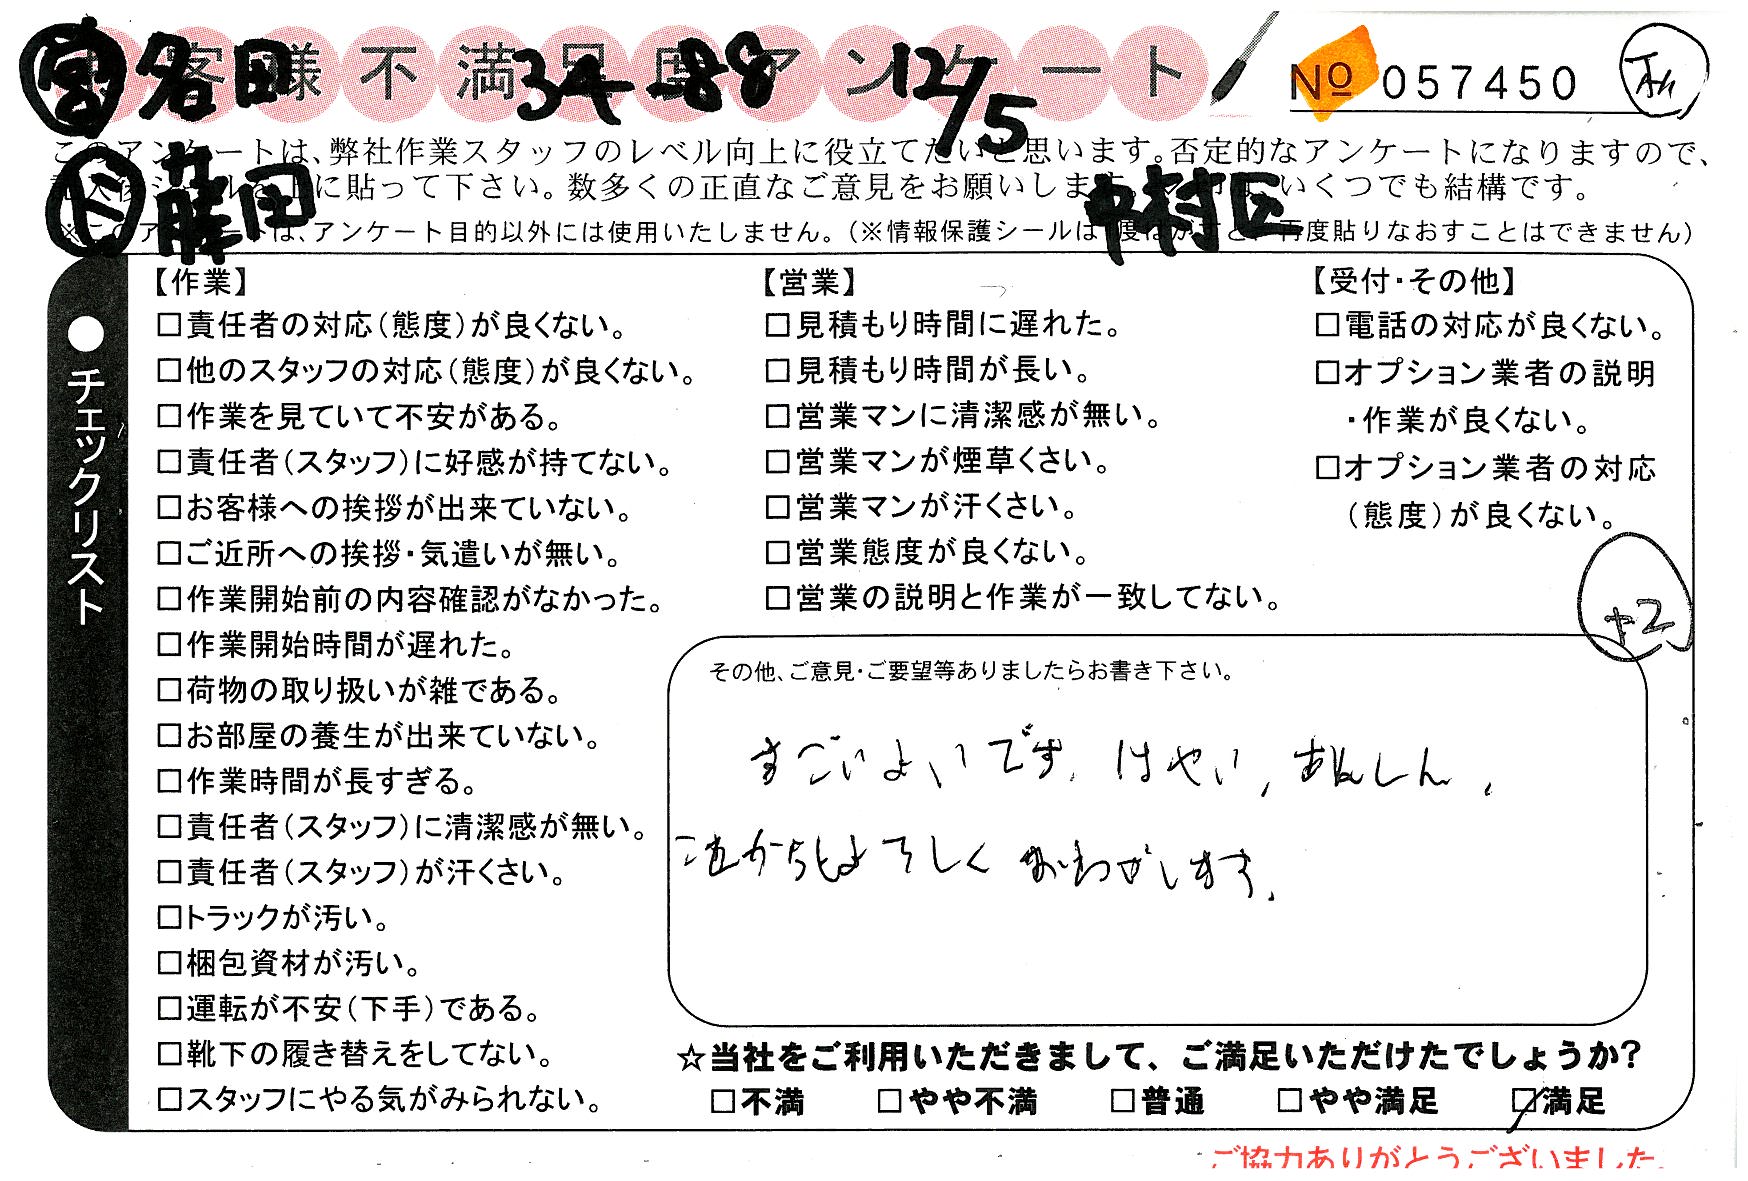 お客様不満足度アンケート
No 057450
宮 名田 34-88 12/5
このアンケートは、弊社作業スタッフのレベル向上に役立てたいと思います。否定的なアンケートになりますので、
に貼って下さい。数多くの正直なご意見をお願いします いくつでも結構です。
ト 藤田 中村区
※このアンケートは、アンケート目的以外には使用いたしません。(※情報保護シールは 度はがすと、再度貼りなおすことはできません)
●チェックリスト
【作業】
□責任者の対応(態度)が良くない。
□他のスタッフの対応(態度)が良くない。
□作業を見ていて不安がある。
□責任者(スタッフ)に好感が持てない。
□お客様への挨拶が出来ていない。
□ご近所への挨拶・気遣いが無い。
□作業開始前の内容確認がなかった。
□作業開始時間が遅れた。
□荷物の取り扱いが雑である。
□お部屋の養生が出来ていない。
□作業時間が長すぎる。
□責任者(スタッフ)に清潔感が無い。
□責任者(スタッフ)が汗くさい。
□トラックが汚い。
□梱包資材が汚い。
□運転が不安(下手)である。
□靴下の履き替えをしてない。
□スタッフにやる気がみられない。
【営業】
□見積もり時間に遅れた。
□見積もり時間が長い。
□営業マンに清潔感が無い。
□営業マンが煙草くさい。
□営業マンが汗くさい。
□営業態度が良くない。
□営業の説明と作業が一致してない。
【受付・その他】
□電話の対応が良くない。
□オプション業者の説明
・作業が良くない。
□オプション業者の対応
(態度)が良くない。
+2
その他、ご意見・ご要望等ありましたらお書き下さい。
すごいよいです。はやい, あんしん,
これからもよろしくおねがいします。
☆当社をご利用いただきまして、ご満足いただけたでしょうか?
□不満 □やや不満 □普通 □やや満足 ☑満足
ご協力ありがとうございました。